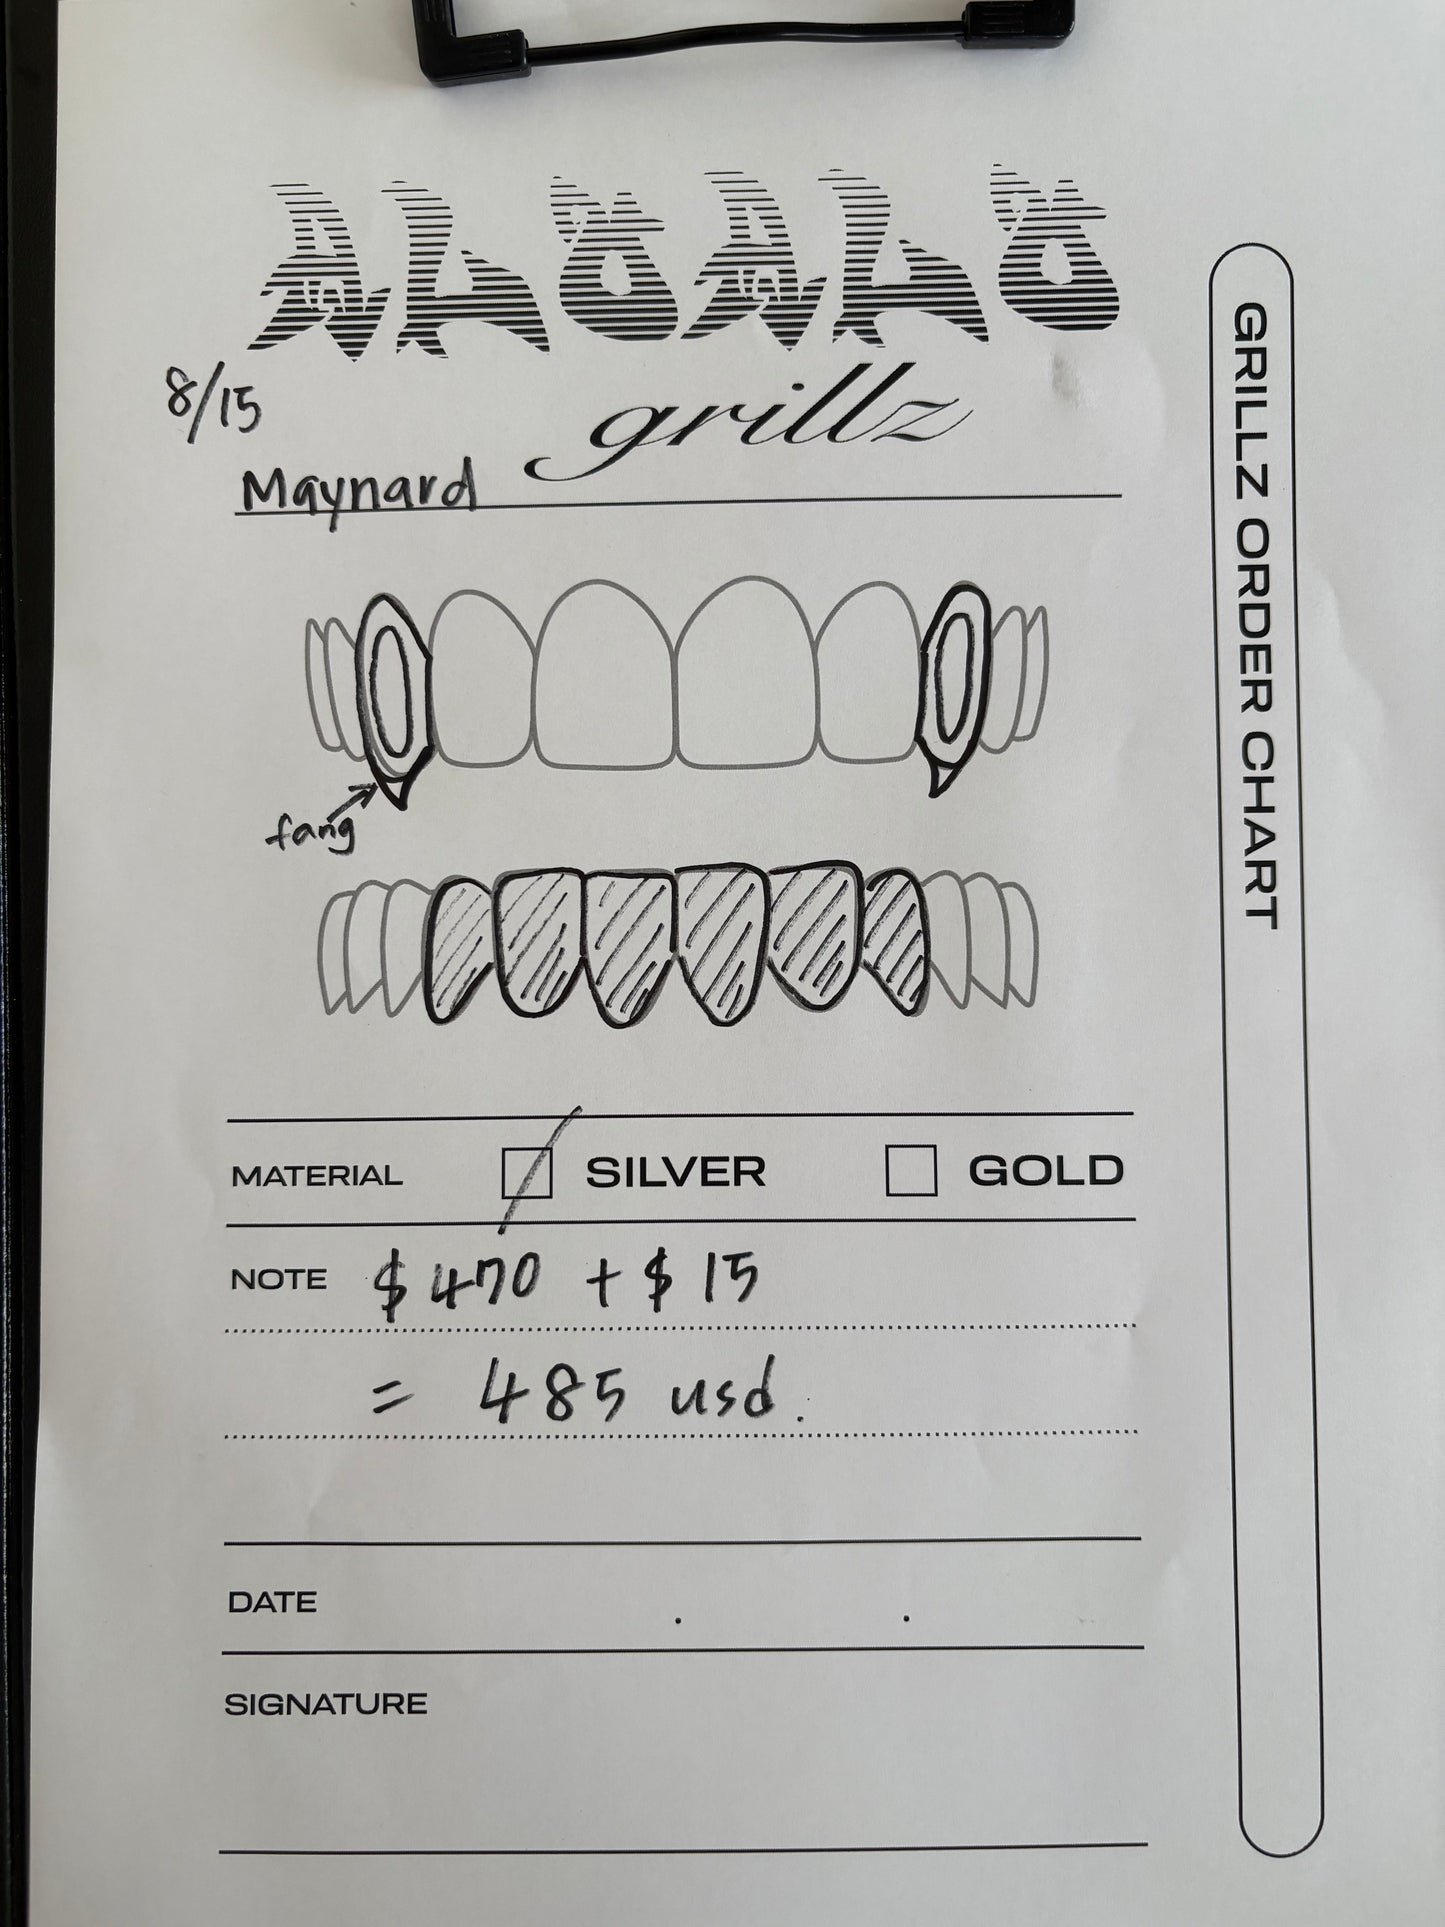 8/15
grillz
Maynard
fang
MATERIAL SILVER GOLD
NOTE $470 + $15
= 485 usd.
DATE . .
SIGNATURE
GRILLZ ORDER CHART